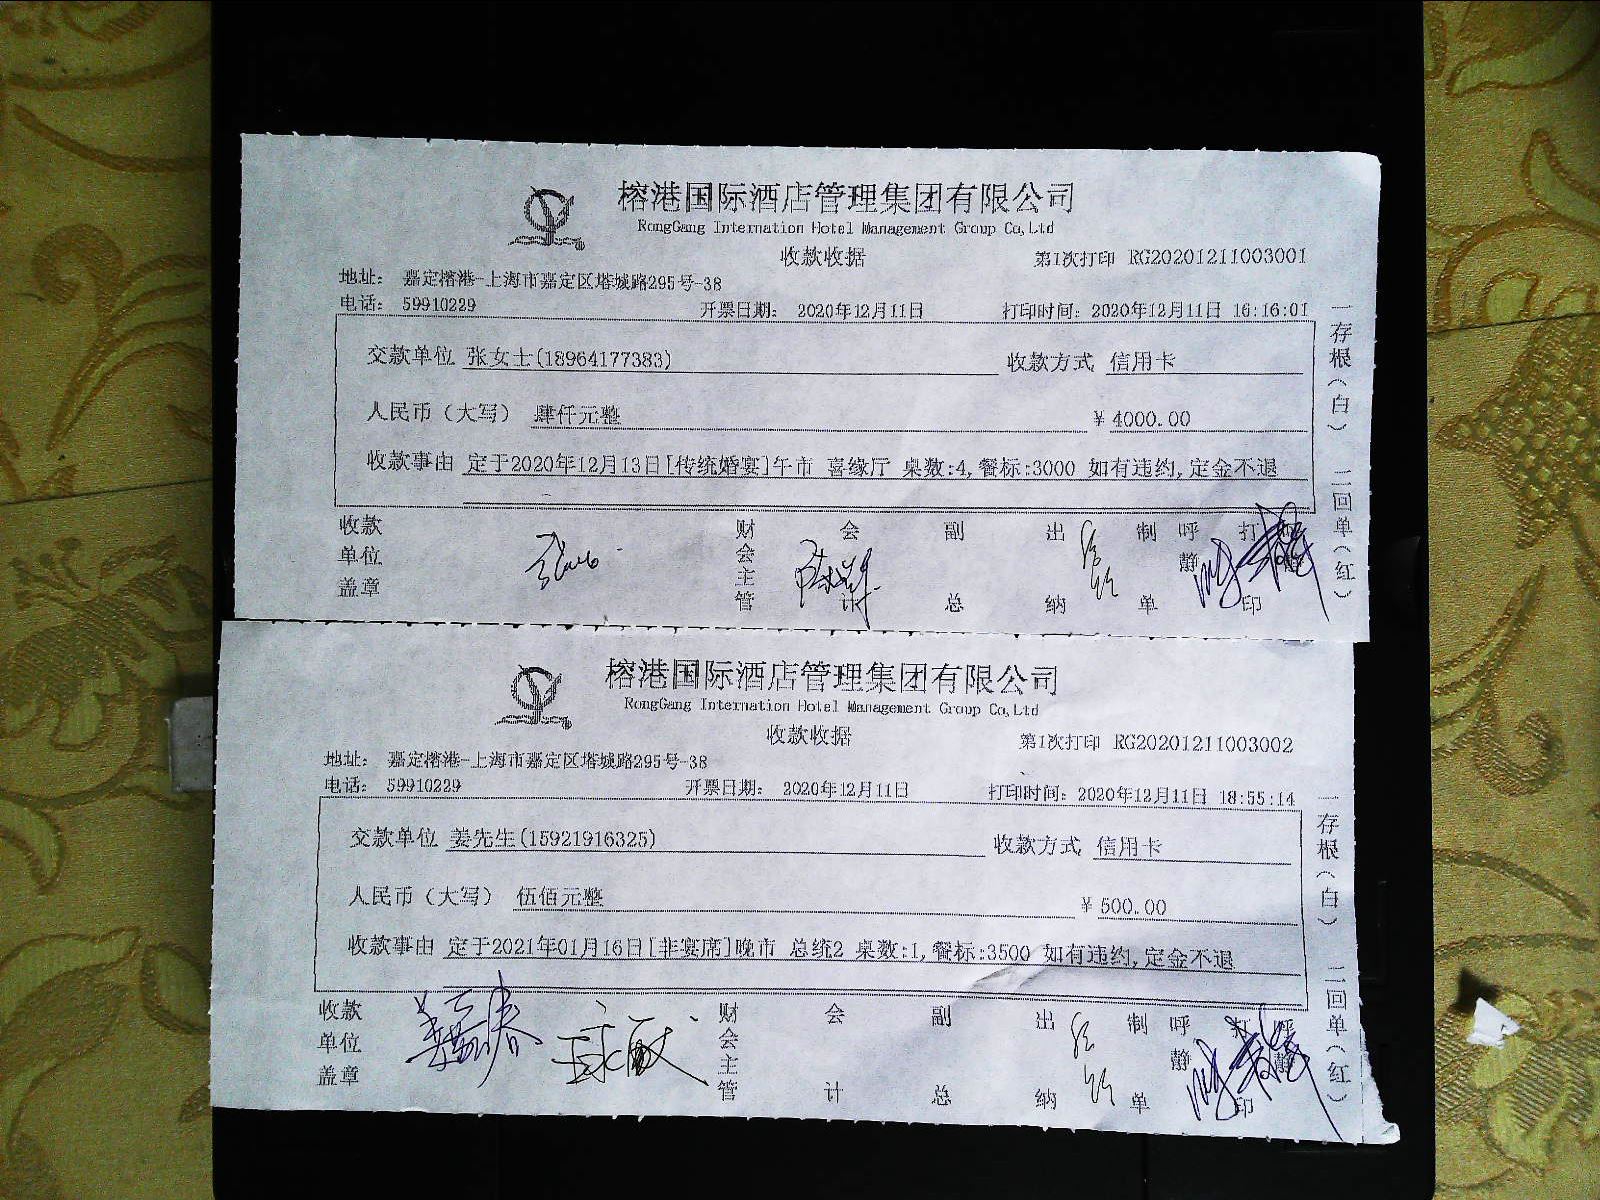 榕港国际酒店管理集团有限公司
RongGang Internation Hotel Management Group Co,Ltd
收款收据 第1次打印 RG20201211003001
地址： 嘉定榕港-上海市嘉定区塔城路295号-38
电话： 59910229 开票日期： 2020年12月11日 打印时间： 2020年12月11日 16:16:01
交款单位 张女士(18964177383) 收款方式 信用卡
人民币（大写） 肆仟元整 ¥ 4000.00
收款事由 定于2020年12月13日[传统婚宴]午市 喜缘厅 桌数:4,餐标:3000 如有违约,定金不退
一存根（白） 二回单（红）
收款单位盖章 财会主管 会计 副总 出纳 制单 呼静 打印
榕港国际酒店管理集团有限公司
RongGang Internation Hotel Management Group Co,Ltd
收款收据 第1次打印 RG20201211003002
地址： 嘉定榕港-上海市嘉定区塔城路295号-38
电话： 59910229 开票日期： 2020年12月11日 打印时间： 2020年12月11日 18:55:14
交款单位 姜先生(15921916325) 收款方式 信用卡
人民币（大写） 伍佰元整 ¥ 500.00
收款事由 定于2021年01月16日[非宴席]晚市 总统2 桌数:1,餐标:3500 如有违约,定金不退
一存根（白） 二回单（红）
收款单位盖章 财会主管 会计 副总 出纳 制单 呼静 打印